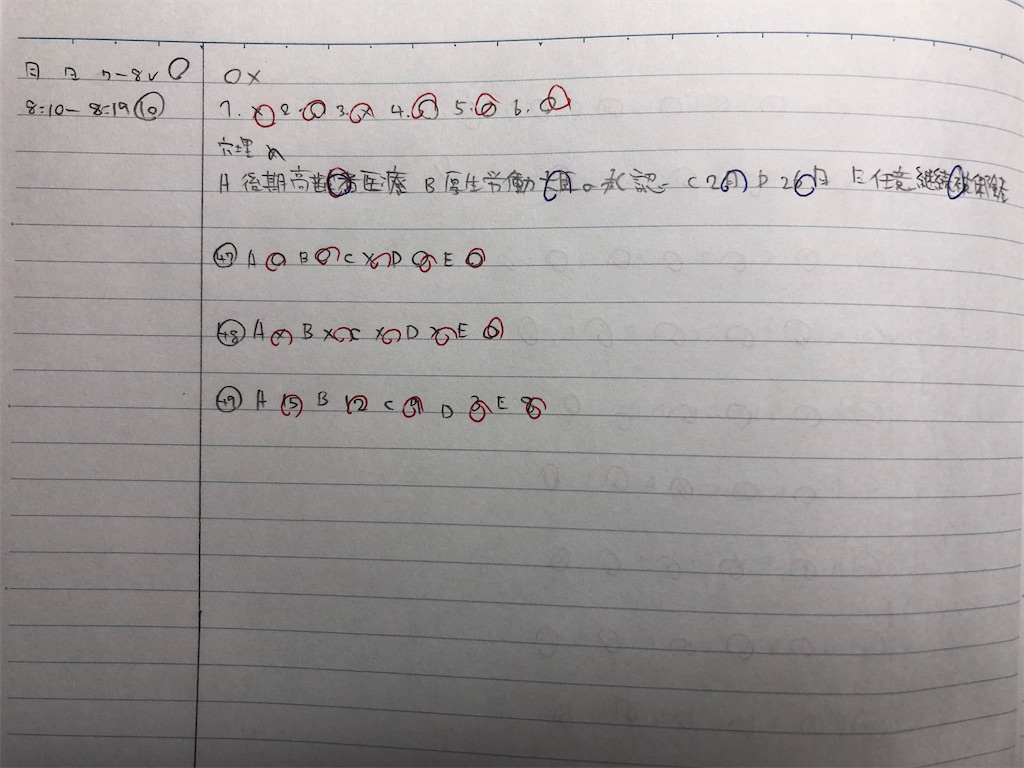 8:10-8:19
○×
1. × 2. ○ 3. × 4. ○ 5. ○ 6. ○
A 後期高齢者医療 B 厚生労働大臣の承認 C 2月 D 26日 E 任意継続被保険
㊼ A ○ B ○ C × D ○ E ○
㊽ A ○ B × C × D × E ○
㊾ A 15 B 12 C 19 D 3 E 8